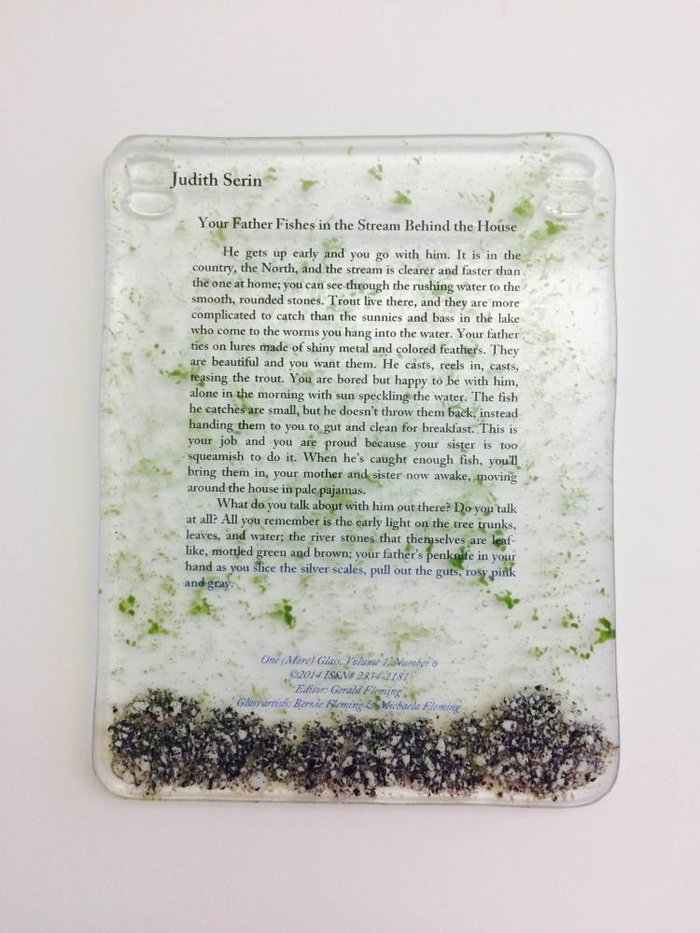 Judith Serin
Your Father Fishes in the Stream Behind the House
He gets up early and you go with him. It is in the
country, the North, and the stream is clearer and faster than
the one at home; you can see through the rushing water to the
smooth, rounded stones. Trout live there, and they are more
complicated to catch than the sunnies and bass in the lake
who come to the worms you hang into the water. Your father
ties on lures made of shiny metal and colored feathers. They
are beautiful and you want them. He casts, reels in, casts,
teasing the trout. You are bored but happy to be with him,
alone in the morning with sun speckling the water. The fish
he catches are small, but he doesn't throw them back, instead
handing them to you to gut and clean for breakfast. This is
your job and you are proud because your sister is too
squeamish to do it. When he's caught enough fish, you'll
bring them in, your mother and sister now awake, moving
around the house in pale pajamas.
What do you talk about with him out there? Do you talk
at all? All you remember is the early light on the tree trunks,
leaves, and water; the river stones that themselves are leaf-
like, mottled green and brown; your father's penknife in your
hand as you slice the silver scales, pull out the guts, rosy pink
and gray.
One (More) Glass, Volume 1, Number 6
©2014 ISSN# 2334-1181
Editor: Gerald Fleming
Glass artists: Bernie Fleming & Michaela Fleming